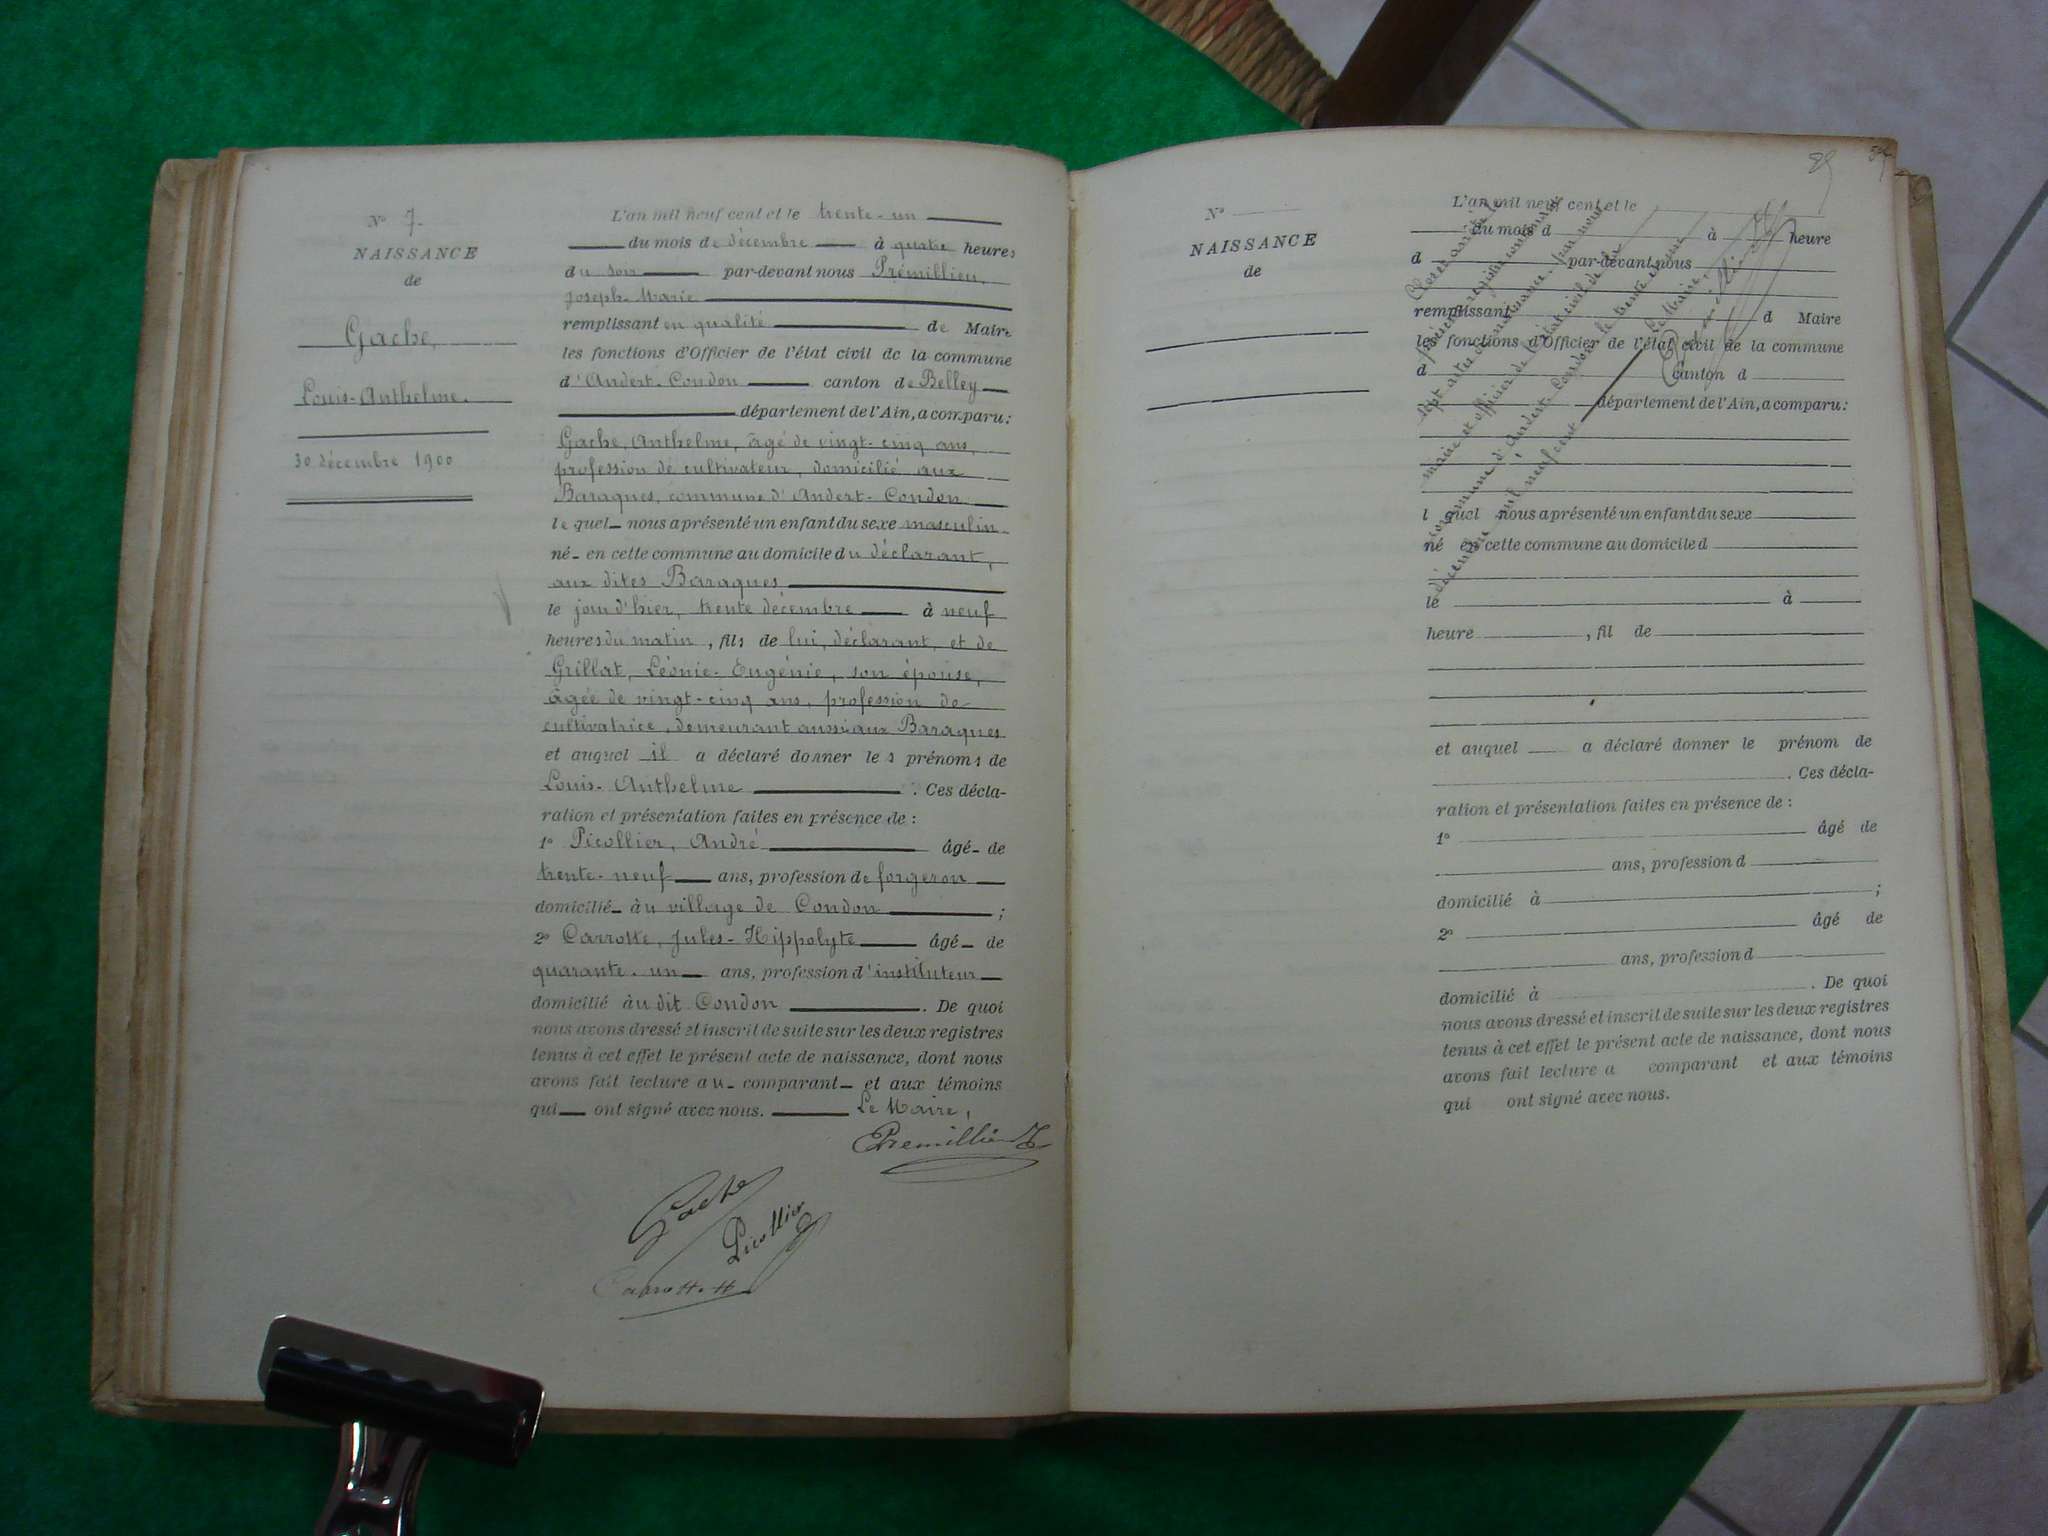 N° 7.
NAISSANCE
de
Gache,
Louis-Anthelme.
30 décembre 1900
L'an mil neuf cent et le trente-un
du mois de décembre à quatre heures
du soir par-devant nous Prémillieu,
Joseph-Marie
remplissant en qualité de Maire
les fonctions d'Officier de l'état civil de la commune
d'Andert-Condon canton de Belley
département de l'Ain, a comparu:
Gache, Anthelme, âgé de vingt-cinq ans,
profession de cultivateur, domicilié aux
Baraques, commune d'Andert-Condon
lequel nous a présenté un enfant du sexe masculin
né en cette commune au domicile du déclarant,
aux dites Baraques
le jour d'hier, trente décembre à neuf
heures du matin, fils de lui, déclarant, et de
Grillat, Léonie-Eugénie, son épouse,
âgée de vingt-cinq ans, profession de
cultivatrice, demeurant aussi aux Baraques
et auquel il a déclaré donner les prénoms de
Louis-Anthelme . Ces décla-
ration et présentation faites en présence de :
1° Picollier, André âgé de
trente-neuf ans, profession de forgeron
domicilié au village de Condon ;
2° Carrotte, Jules-Hippolyte âgé de
quarante-un ans, profession d'instituteur
domicilié au dit Condon . De quoi
nous avons dressé et inscrit de suite sur les deux registres
tenus à cet effet le présent acte de naissance, dont nous
avons fait lecture au comparant et aux témoins
qui ont signé avec nous. Le Maire,
Premillieu
Gache
Picollier
Carrotte
89
N°
NAISSANCE
de
L'an mil neuf cent et le
du mois d à heure
d par-devant nous
remplissant d Maire
les fonctions d'Officier de l'état civil de la commune
d canton d
département de l'Ain, a comparu:
l quel nous a présenté un enfant du sexe
né en cette commune au domicile d
le à
heure , fil de
et auquel a déclaré donner le prénom de
. Ces décla-
ration et présentation faites en présence de :
1° âgé de
ans, profession d
domicilié à ;
2° âgé de
ans, profession d
domicilié à . De quoi
nous avons dressé et inscrit de suite sur les deux registres
tenus à cet effet le présent acte de naissance, dont nous
avons fait lecture a comparant et aux témoins
qui ont signé avec nous.
Clos et arrêté le
présent registre contenant
sept actes de naissance, par nous
maire et officier de l'état civil de la
commune d'Andert-Condon le trente-un
décembre mil neuf cent
Le Maire,
Premillieu